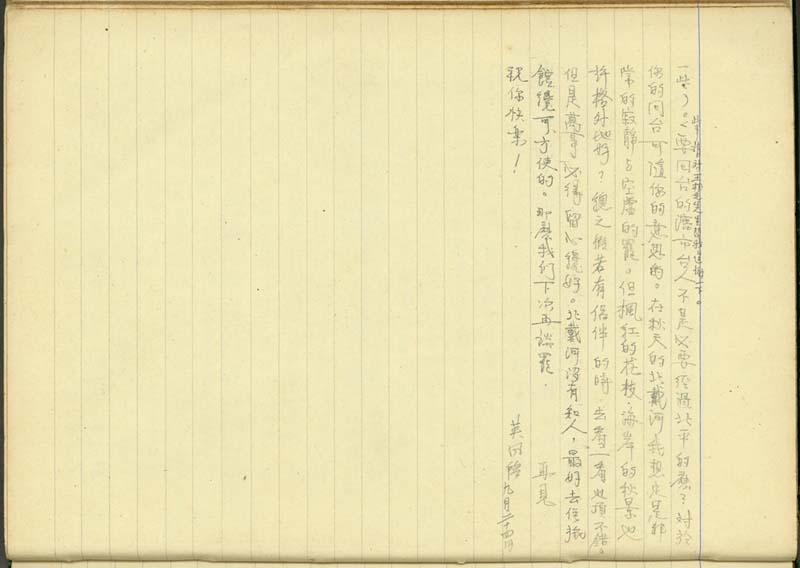 一些)。(要回台的灤市台人不是必要經過北平的嗎?對於
你的回台可隨你的意思的。在秋天的北戴河我想定是非
常的寂靜与空虛的罷。但楓紅的花枝,海岸的秋景也
許格外地好?總之假若有侶伴的時,去看一看也頂不錯。
但是萬事必得留心纔好。北戴河沒有知人,最好去住旅
館纔可方便的。那麼我们下次再談罷. 再見
祝你快樂!
英 回啓 九月二十四日